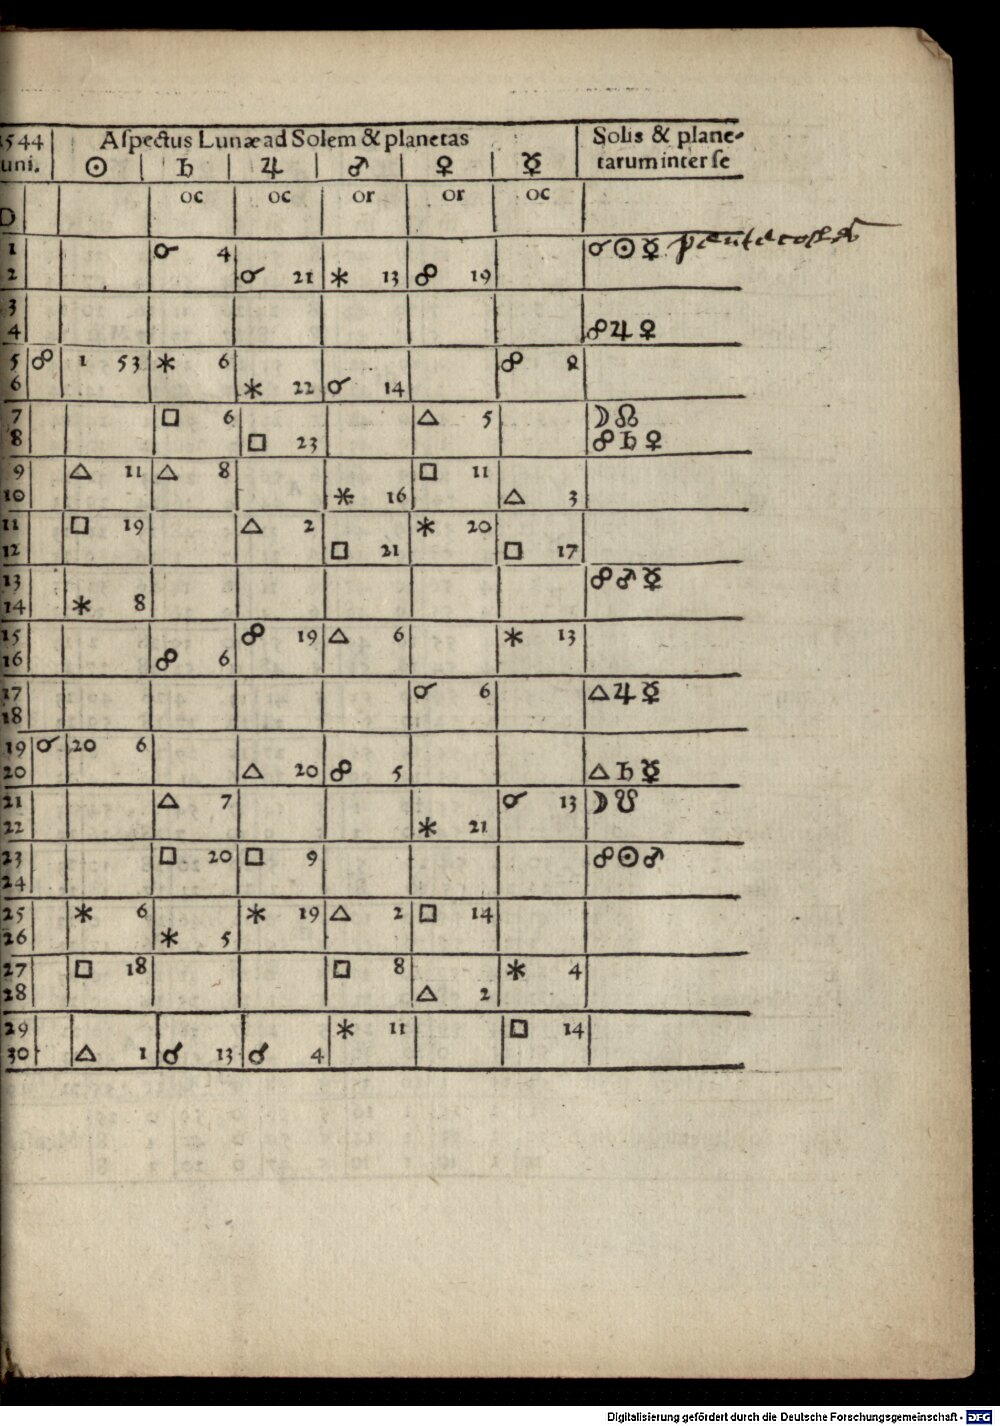 1544 Aſpectus Lunæ ad Solem & planetas Solis & plane-
uni. ☉ ♄ ♃ ♂ ♀ ☿ tarum inter ſe
D oc oc or or oc
1 ☌ 4 ☌ ☉ ☿ pentecostes
2 ☌ 21 ⚹ 13 ☍ 19
3
4 ☍ ♃ ♀
5 ☍ 1 53 ⚹ 6 ☍ 2
6 ⚹ 22 ☌ 14
7 □ 6 △ 5 ☽ ☊
8 □ 23 ☍ ♄ ♀
9 △ 11 △ 8 □ 11
10 ⚹ 16 △ 3
11 □ 19 △ 2 ⚹ 20
12 □ 21 □ 17
13 ☍ ♂ ☿
14 ⚹ 8
15 ☍ 19 △ 6 ⚹ 13
16 ☍ 6
17 ☌ 6 △ ♃ ☿
18
19 ☌ 20 6
20 △ 20 ☍ 5 △ ♄ ☿
21 △ 7 ☌ 13 ☽ ☋
22 ⚹ 21
23 □ 20 □ 9 ☍ ☉ ♂
24
25 ⚹ 6 ⚹ 19 △ 2 □ 14
26 ⚹ 5
27 □ 18 □ 8 ⚹ 4
28 △ 2
29 ⚹ 11 □ 14
30 △ 1 ☌ 13 ☌ 4
Digitalisierung gefördert durch die Deutsche Forschungsgemeinschaft - DFG